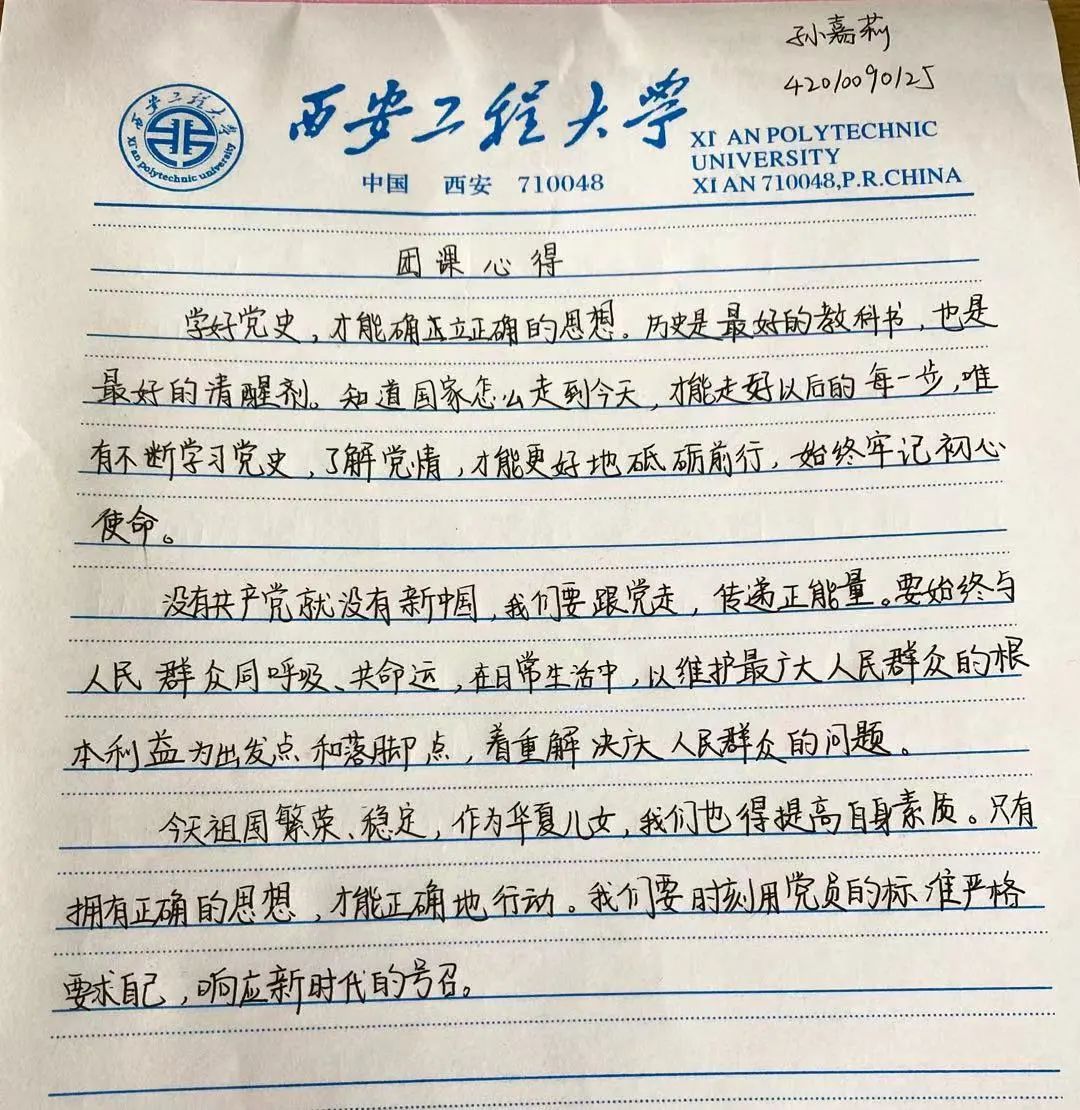 孙嘉莉
42010090125
西安工程大学
Xi'an polytechnic university
西安工程大学
XI AN POLYTECHNIC
UNIVERSITY
中国 西安 710048
XI AN 710048,P.R.CHINA
团课心得
学好党史，才能确正立正确的思想。历史是最好的教科书，也是
最好的清醒剂。知道国家怎么走到今天，才能走好以后的每一步，唯
有不断学习党史，了解党情，才能更好地砥砺前行，始终牢记初心
使命。
没有共产党就没有新中国，我们要跟党走，传递正能量。要始终与
人民群众同呼吸、共命运，在日常生活中，以维护最广大人民群众的根
本利益为出发点和落脚点，着重解决广大人民群众的问题。
今天祖国繁荣、稳定，作为华夏儿女，我们也得提高自身素质。只有
拥有正确的思想，才能正确地行动。我们要时刻用党员的标准严格
要求自己，响应新时代的号召。